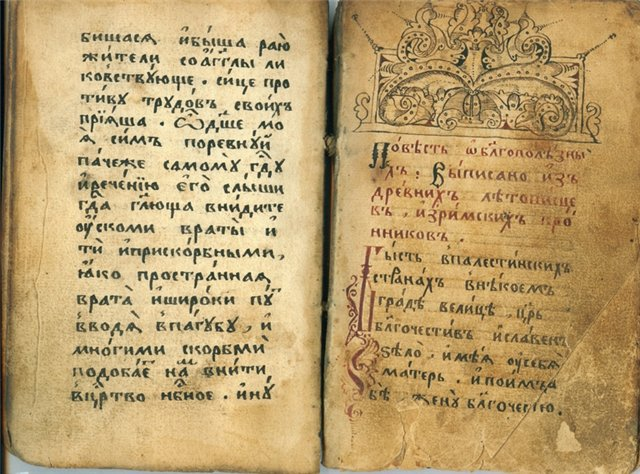 бишася иꙗбыша раю
жители соаг҃глы ли
ковствꙋюще . сице про
тивꙋ трꙋдовъ своихъ
прїꙗша . Ѽд҃ше мо
ѧ симъ поревнꙋй
паче же самомꙋ гд҃ꙋ
иречению его слыши
гд҃а гл҃юща внидите
ꙋскоми враты и
ти иприскорбными ,
ꙗко пространнаѧ
врата ишироки пꙋ
вводѧ впагꙋбꙋ , и
многими скорбми
подобаⷮе на внити
вцр҃тво нб҃ное . инꙋ
Повѣсть ѡ бл҃гополѣзны
дъ : Выписано изъ
древнихъ лѣтописце
въ , изримскихъ кро
нниковъ .
Бысть впалестинскихъ
странах внѣкоемъ
градѣ велицѣ , цр҃ь
бл҃гочестивъ иславенъ
ѕѣло . имѣѧ ꙋсебѧ
матерь . ипоимъ за
бѣ женꙋ бл҃гочесїю .